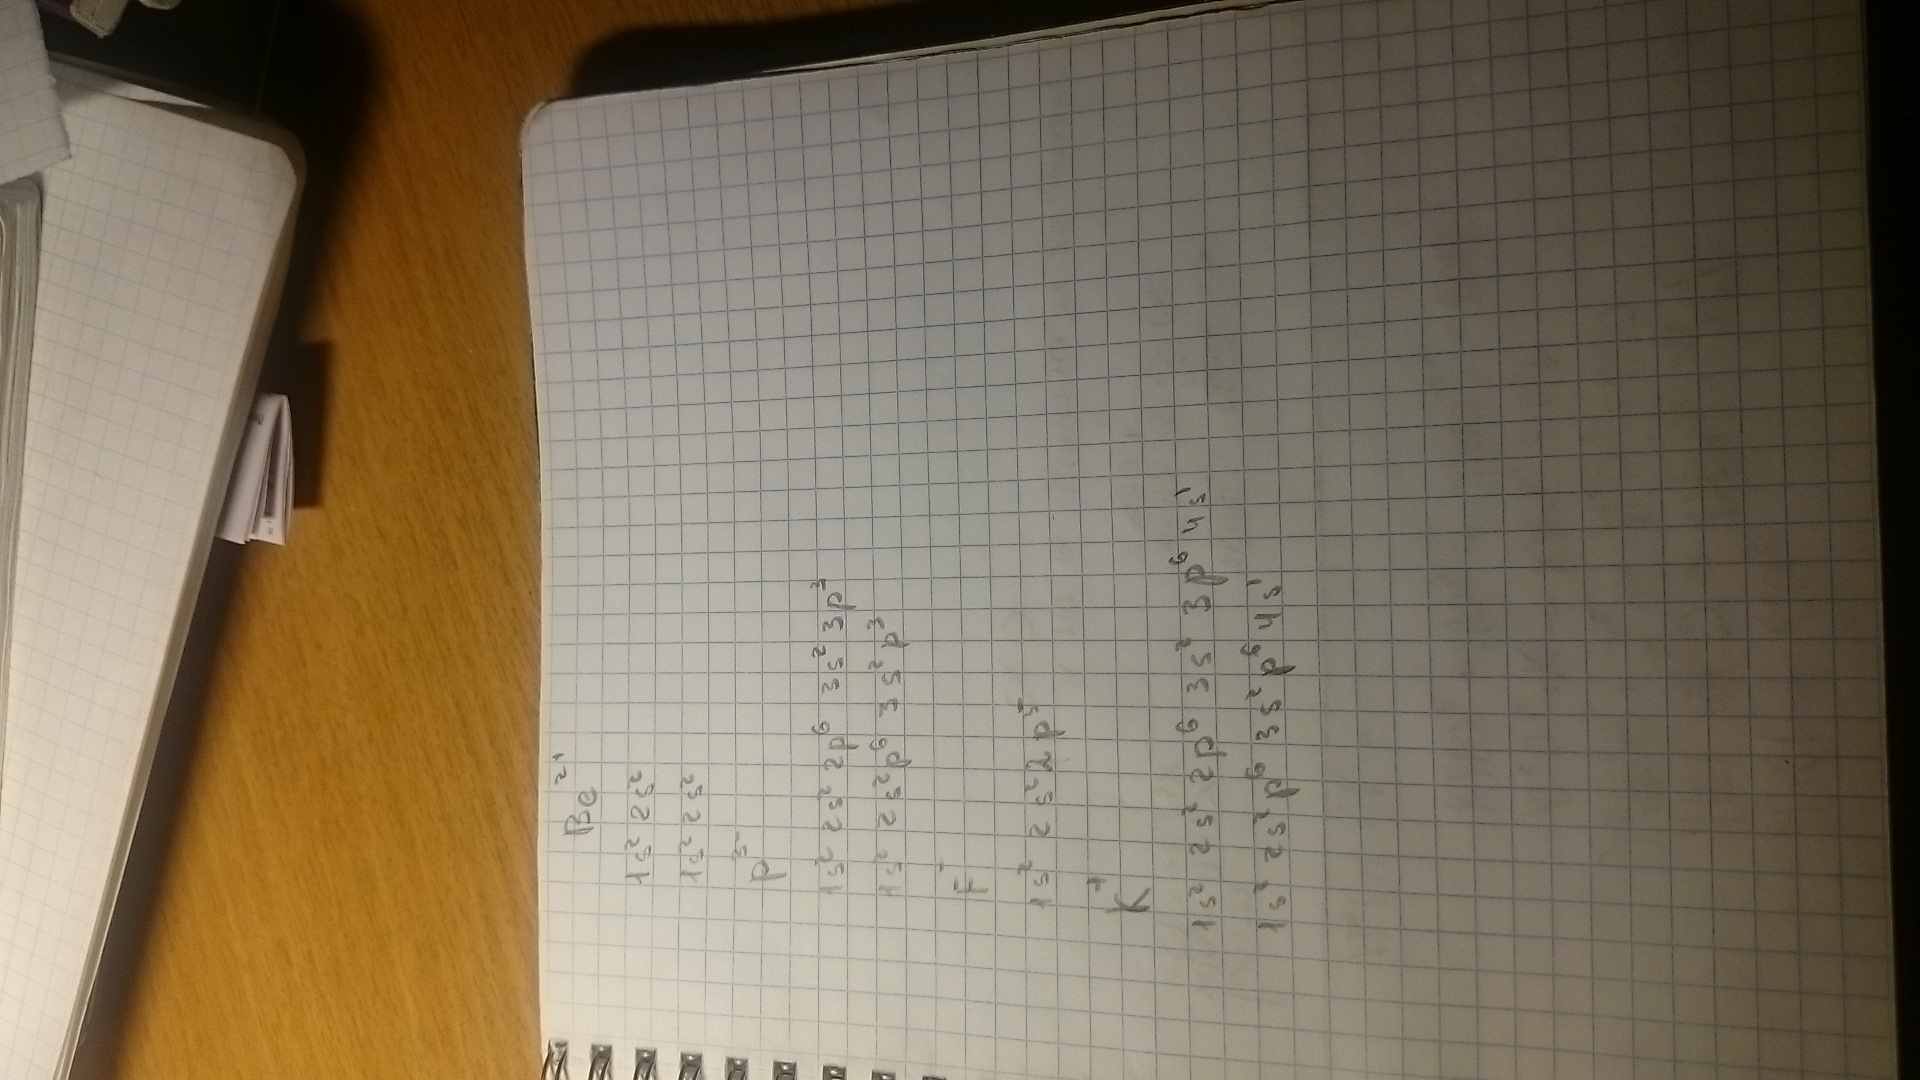 Be²⁺
1s² 2s²
1s² 2s²
P³⁻
1s² 2s² 2p⁶ 3s² 3p³
1s² 2s² p⁶ 3s² p³
F⁻
1s² 2s² 2p⁵
K⁺
1s² 2s² 2p⁶ 3s² 3p⁶ 4s¹
1s² 2s² p⁶ 3s² p⁶ 4s¹